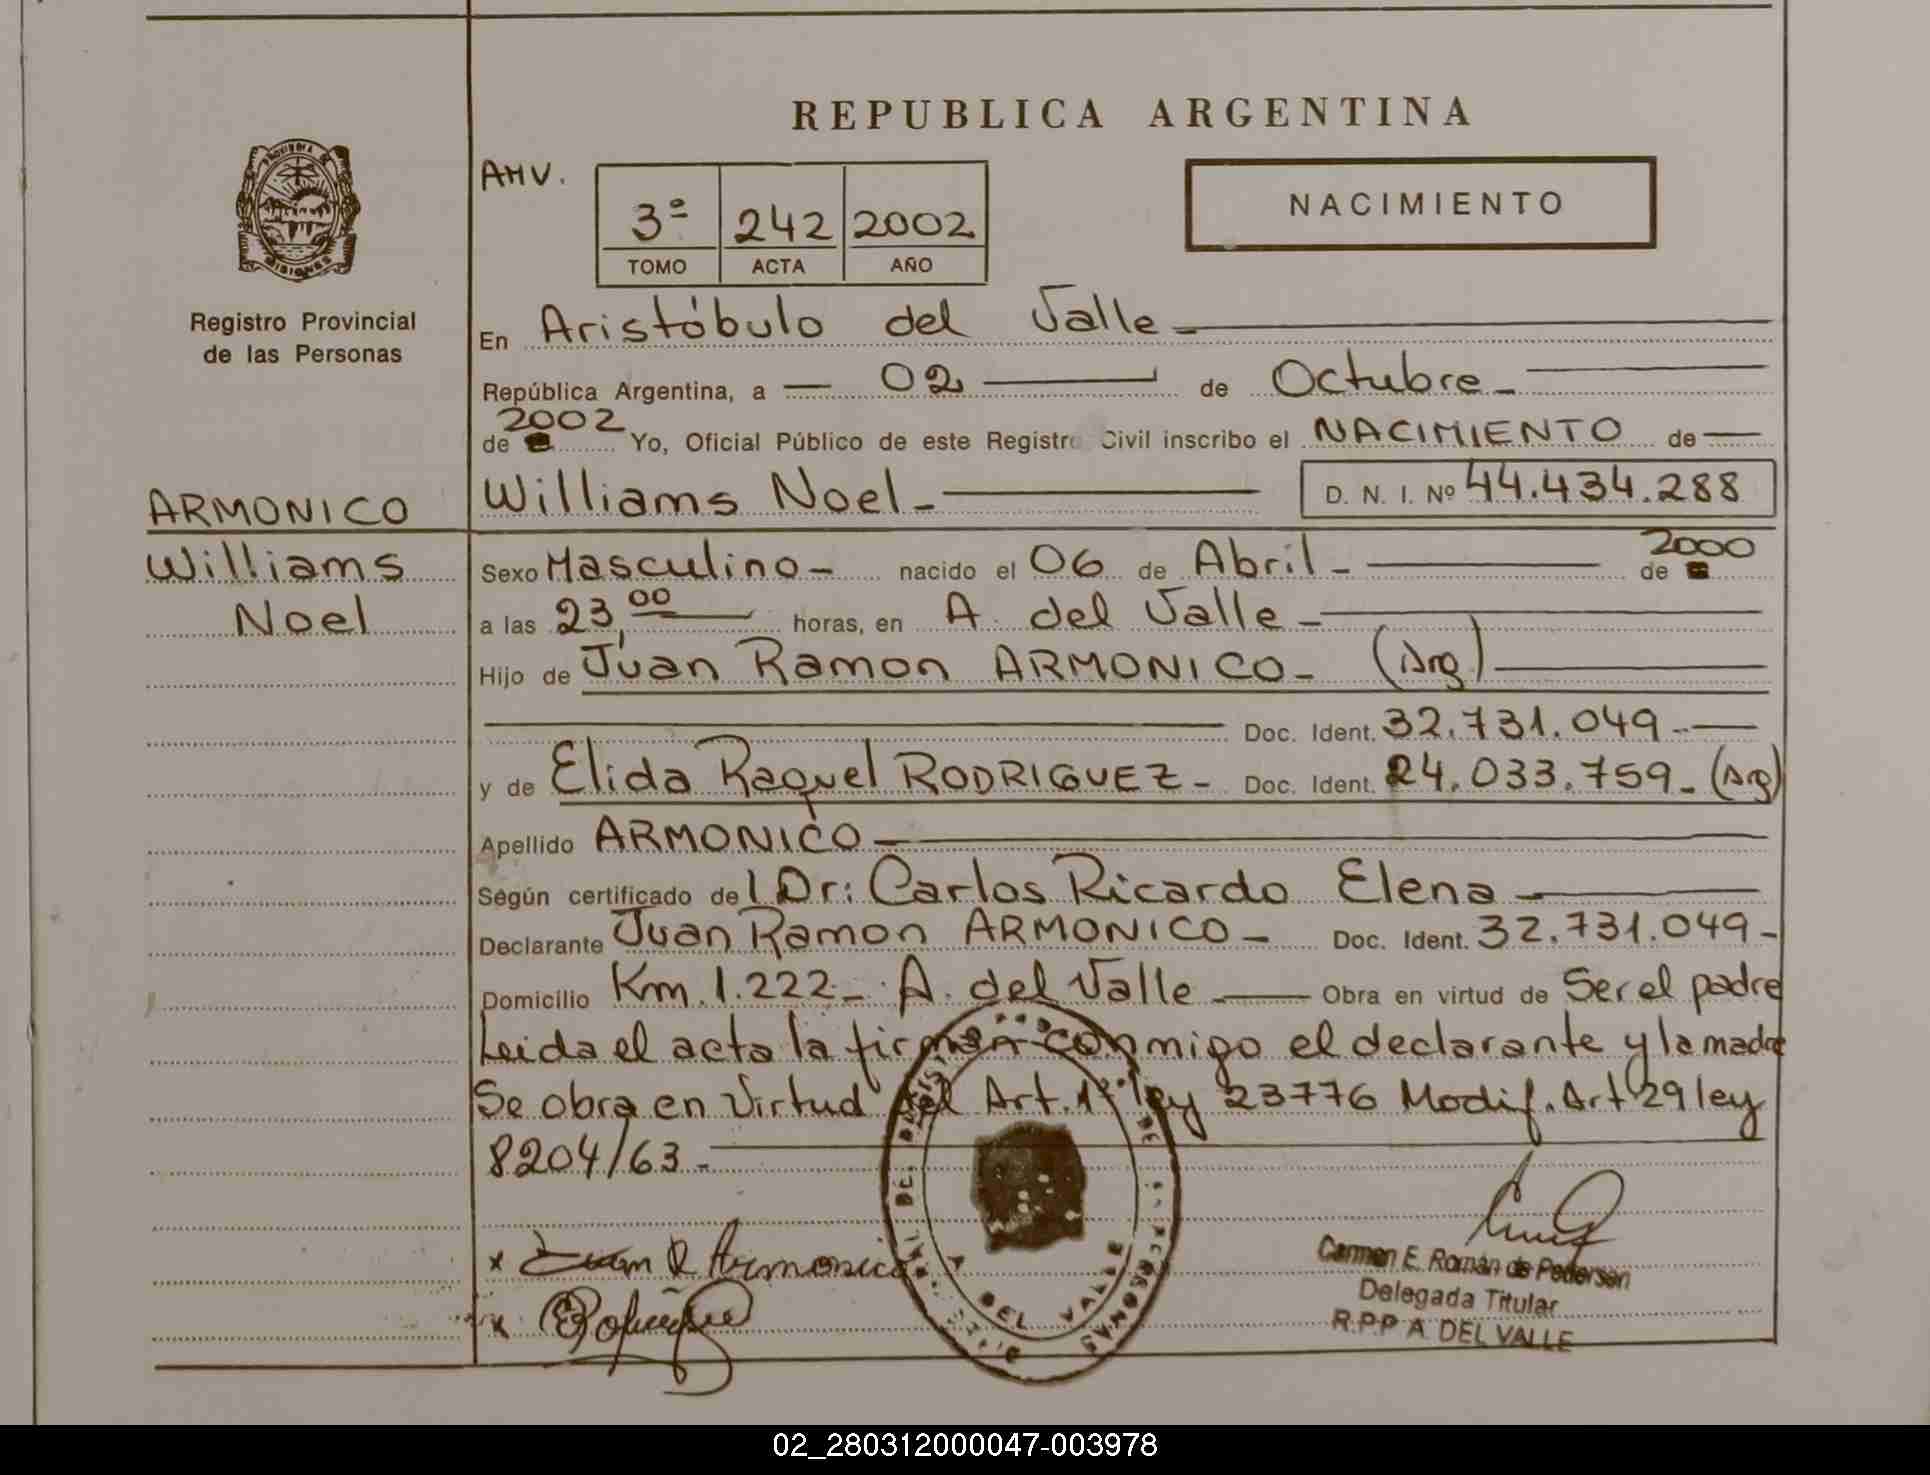 REPUBLICA ARGENTINA
AHV.
3º 242 2002
TOMO ACTA AÑO
NACIMIENTO
PROVINCIA DE
MISIONES
Registro Provincial
de las Personas
En Aristóbulo del Valle
República Argentina, a 02 de Octubre
de 2002 Yo, Oficial Público de este Registro Civil inscribo el NACIMIENTO de
Williams Noel D. N. I. Nº 44.434.288
ARMONICO
Williams
Noel
Sexo Masculino nacido el 06 de Abril de 2000
a las 23,00 horas, en A. del Valle
Hijo de Juan Ramon ARMONICO (Arg)
Doc. Ident. 32.731.049
y de Elida Raquel RODRIGUEZ Doc. Ident. 24.033.759 (Arg)
Apellido ARMONICO
Según certificado de Dr: Carlos Ricardo Elena
Declarante Juan Ramon ARMONICO Doc. Ident. 32.731.049
Domicilio Km. 1.222 A. del Valle Obra en virtud de Ser el padre
Leida el acta la firman conmigo el declarante y la madre
Se obra en Virtud del Art. 1º ley 23776 Modif. Art 29 ley
8204/63
x Juan R Armonico
x
A DEL VALLE
Carmen E. Román de Pedersen
Delegada Titular
R.P.P A. DEL VALLE
02_280312000047-003978